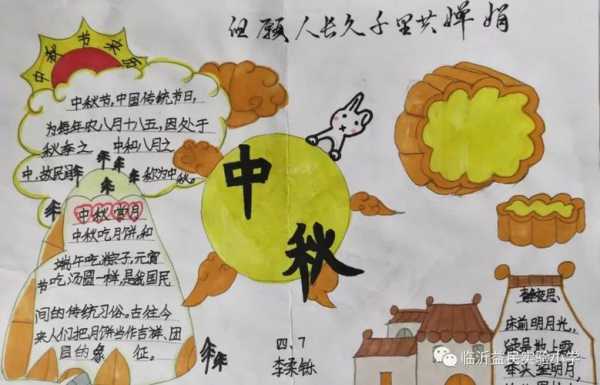 但愿人长久千里共婵娟
中秋节
中秋节,中国传统节日,
为每年农八月十八五,因处于
秋季之 中和八月之
中,故民间 称为中秋。
中秋赏月
中秋吃月饼,和
端午吃粽子,元宵
节吃汤圆一样,是我国民
间的传统习俗。古往今
来人们把月饼当作吉祥、团
圆的象 征。
中
秋
四.7
李柔铄
静夜思
床前明月光,
疑是地上霜
举头望明月,
临沂益民实验小学